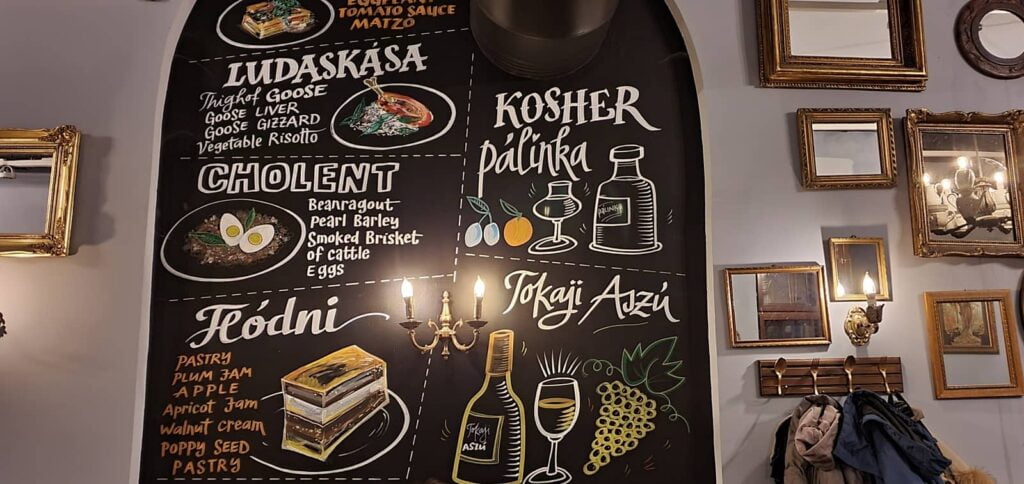 EGGPLANT
TOMATO SAUCE
MATZÓ
LUDASKÁSA
Thigh of GOOSE
GOOSE LIVER
GOOSE GIZZARD
Vegetable Risotto
CHOLENT
Beanragout
Pearl Barley
Smoked Brisket
of cattle
Eggs
Flódni
PASTRY
PLUM JAM
APPLE
Apricot Jam
Walnut cream
POPPY SEED
PASTRY
KOSHER
pálinka
Tokaji Aszú
Tokaji
ASZÚ